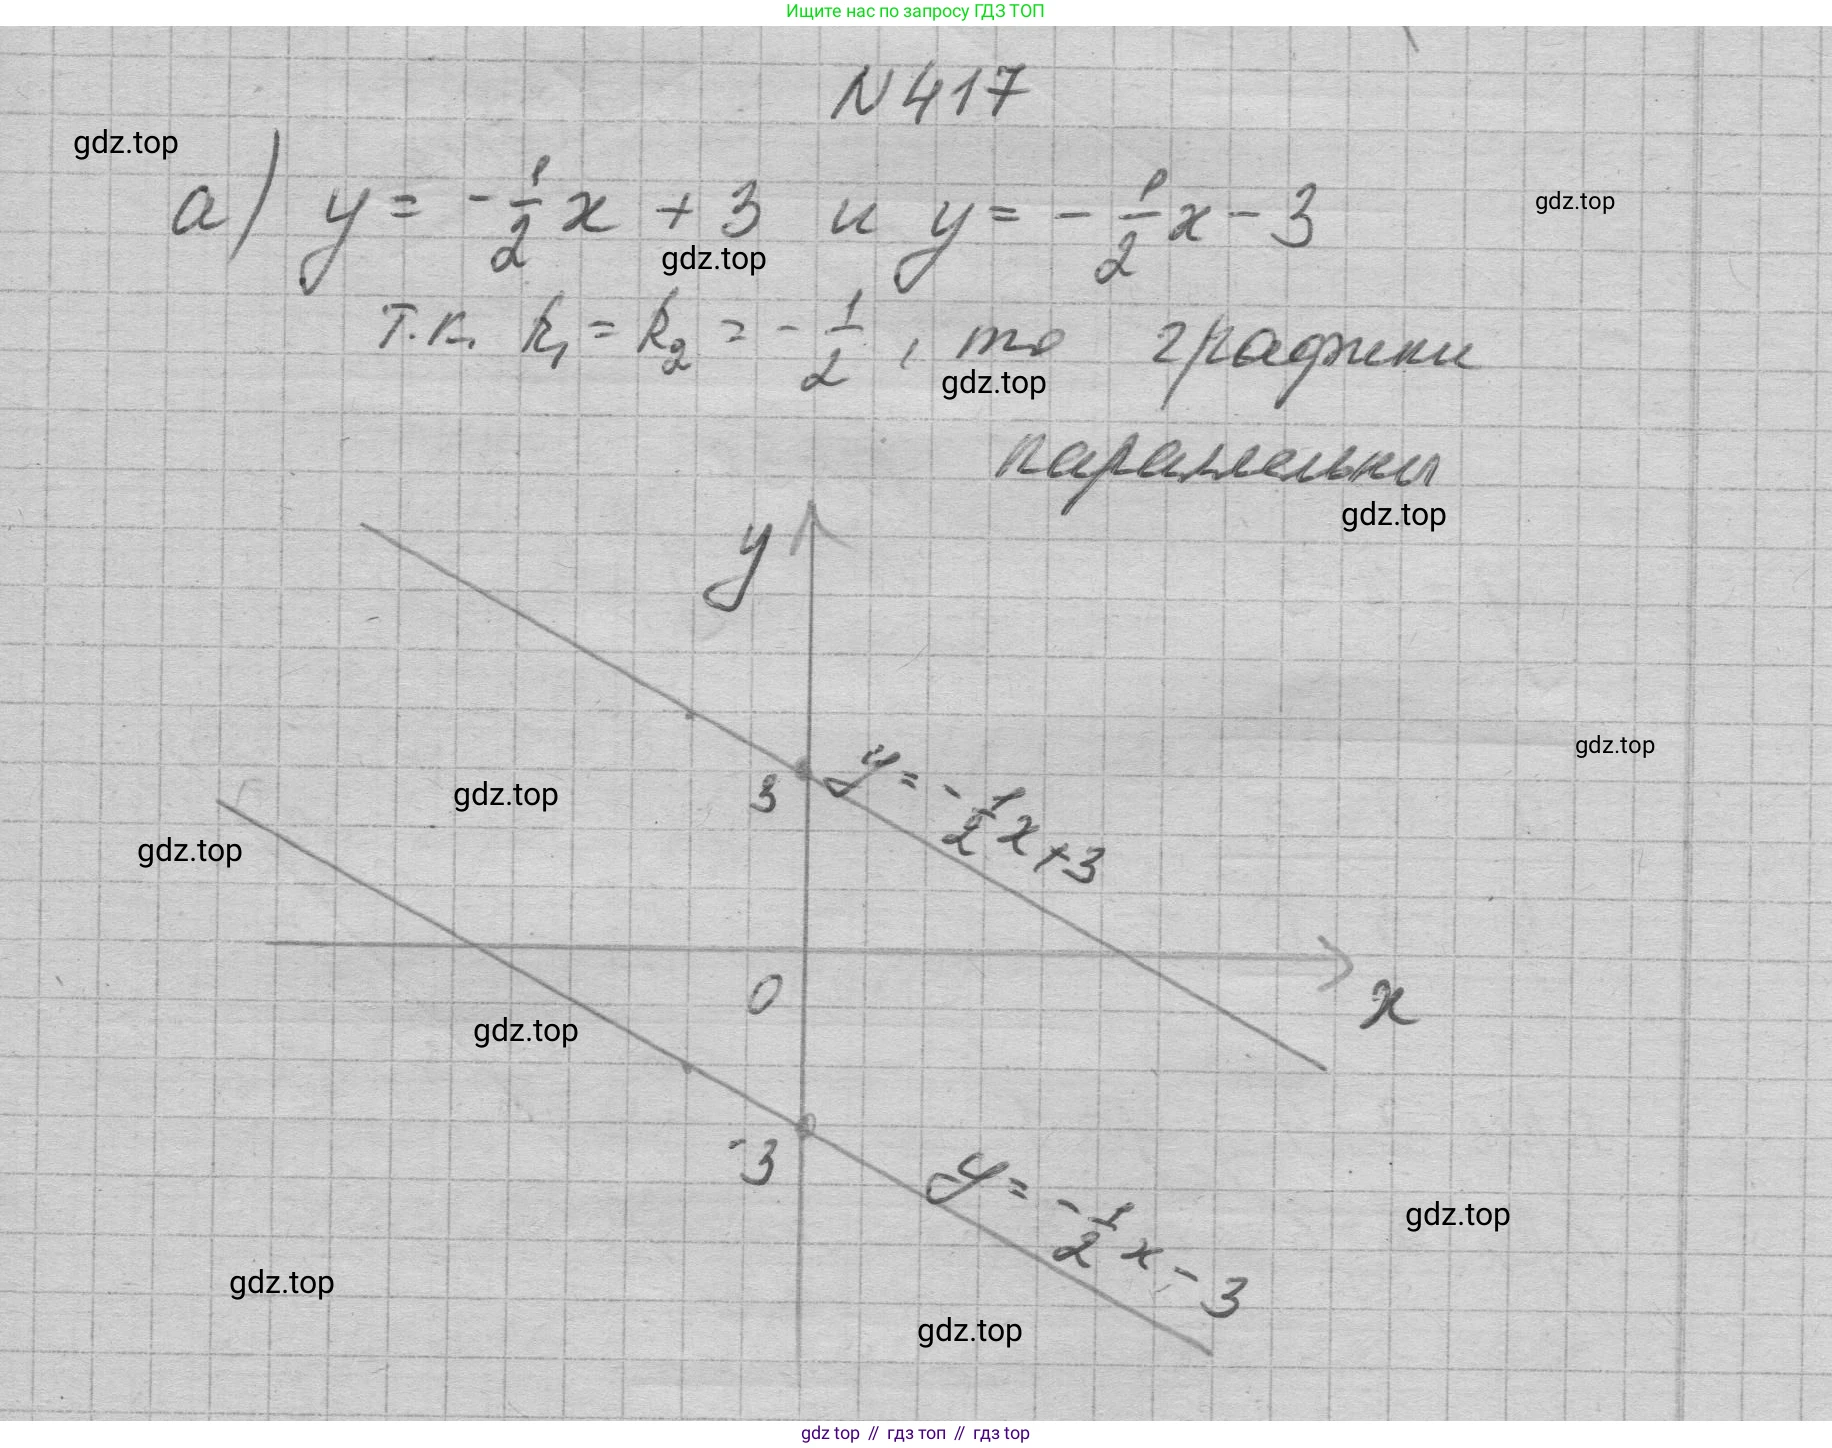 Ищите нас по запросу ГДЗ ТОП
N 417
gdz.top
а) y = -1/2 x + 3 и y = -1/2 x - 3
gdz.top
gdz.top
т.к. k₁ = k₂ = -1/2, то графики
gdz.top
параллельны
gdz.top
y
gdz.top
3
y = -1/2 x + 3
gdz.top
gdz.top
0
x
gdz.top
-3
y = -1/2 x - 3
gdz.top
gdz.top
gdz.top
gdz top // гдз топ // гдз top